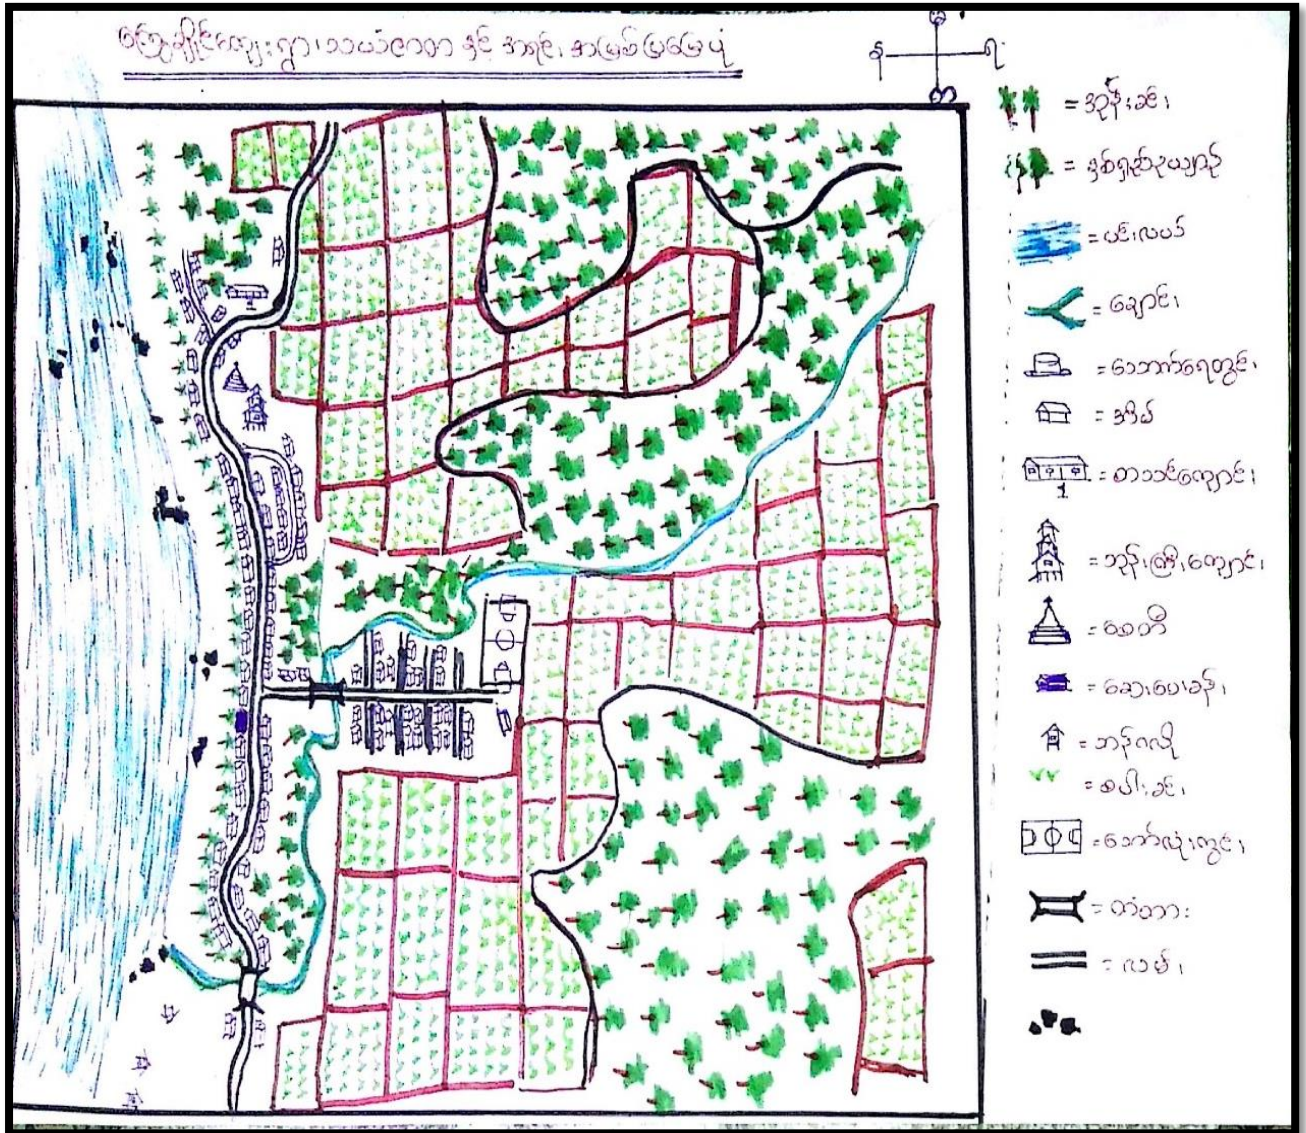 ကြွေချိုင်ကျေးရွာ၊သယံဇာတ နှင့် အရင်းအမြစ်ပြမြေပုံ
မ
န ရ
တ
= အုန်းခင်း
= နှစ်ရှည်ဥယျာဉ်
= ပင်လယ်
= ချောင်း
= သောက်ရေတွင်း
= အိမ်
= စာသင်ကျောင်း
= ဘုန်းကြီးကျောင်း
= စေတီ
= ဆေးပေးခန်း
= ဘန်ဂလို
= စပါးခင်း
= ဘော်လုံးကွင်း
= တံတား
= လမ်း